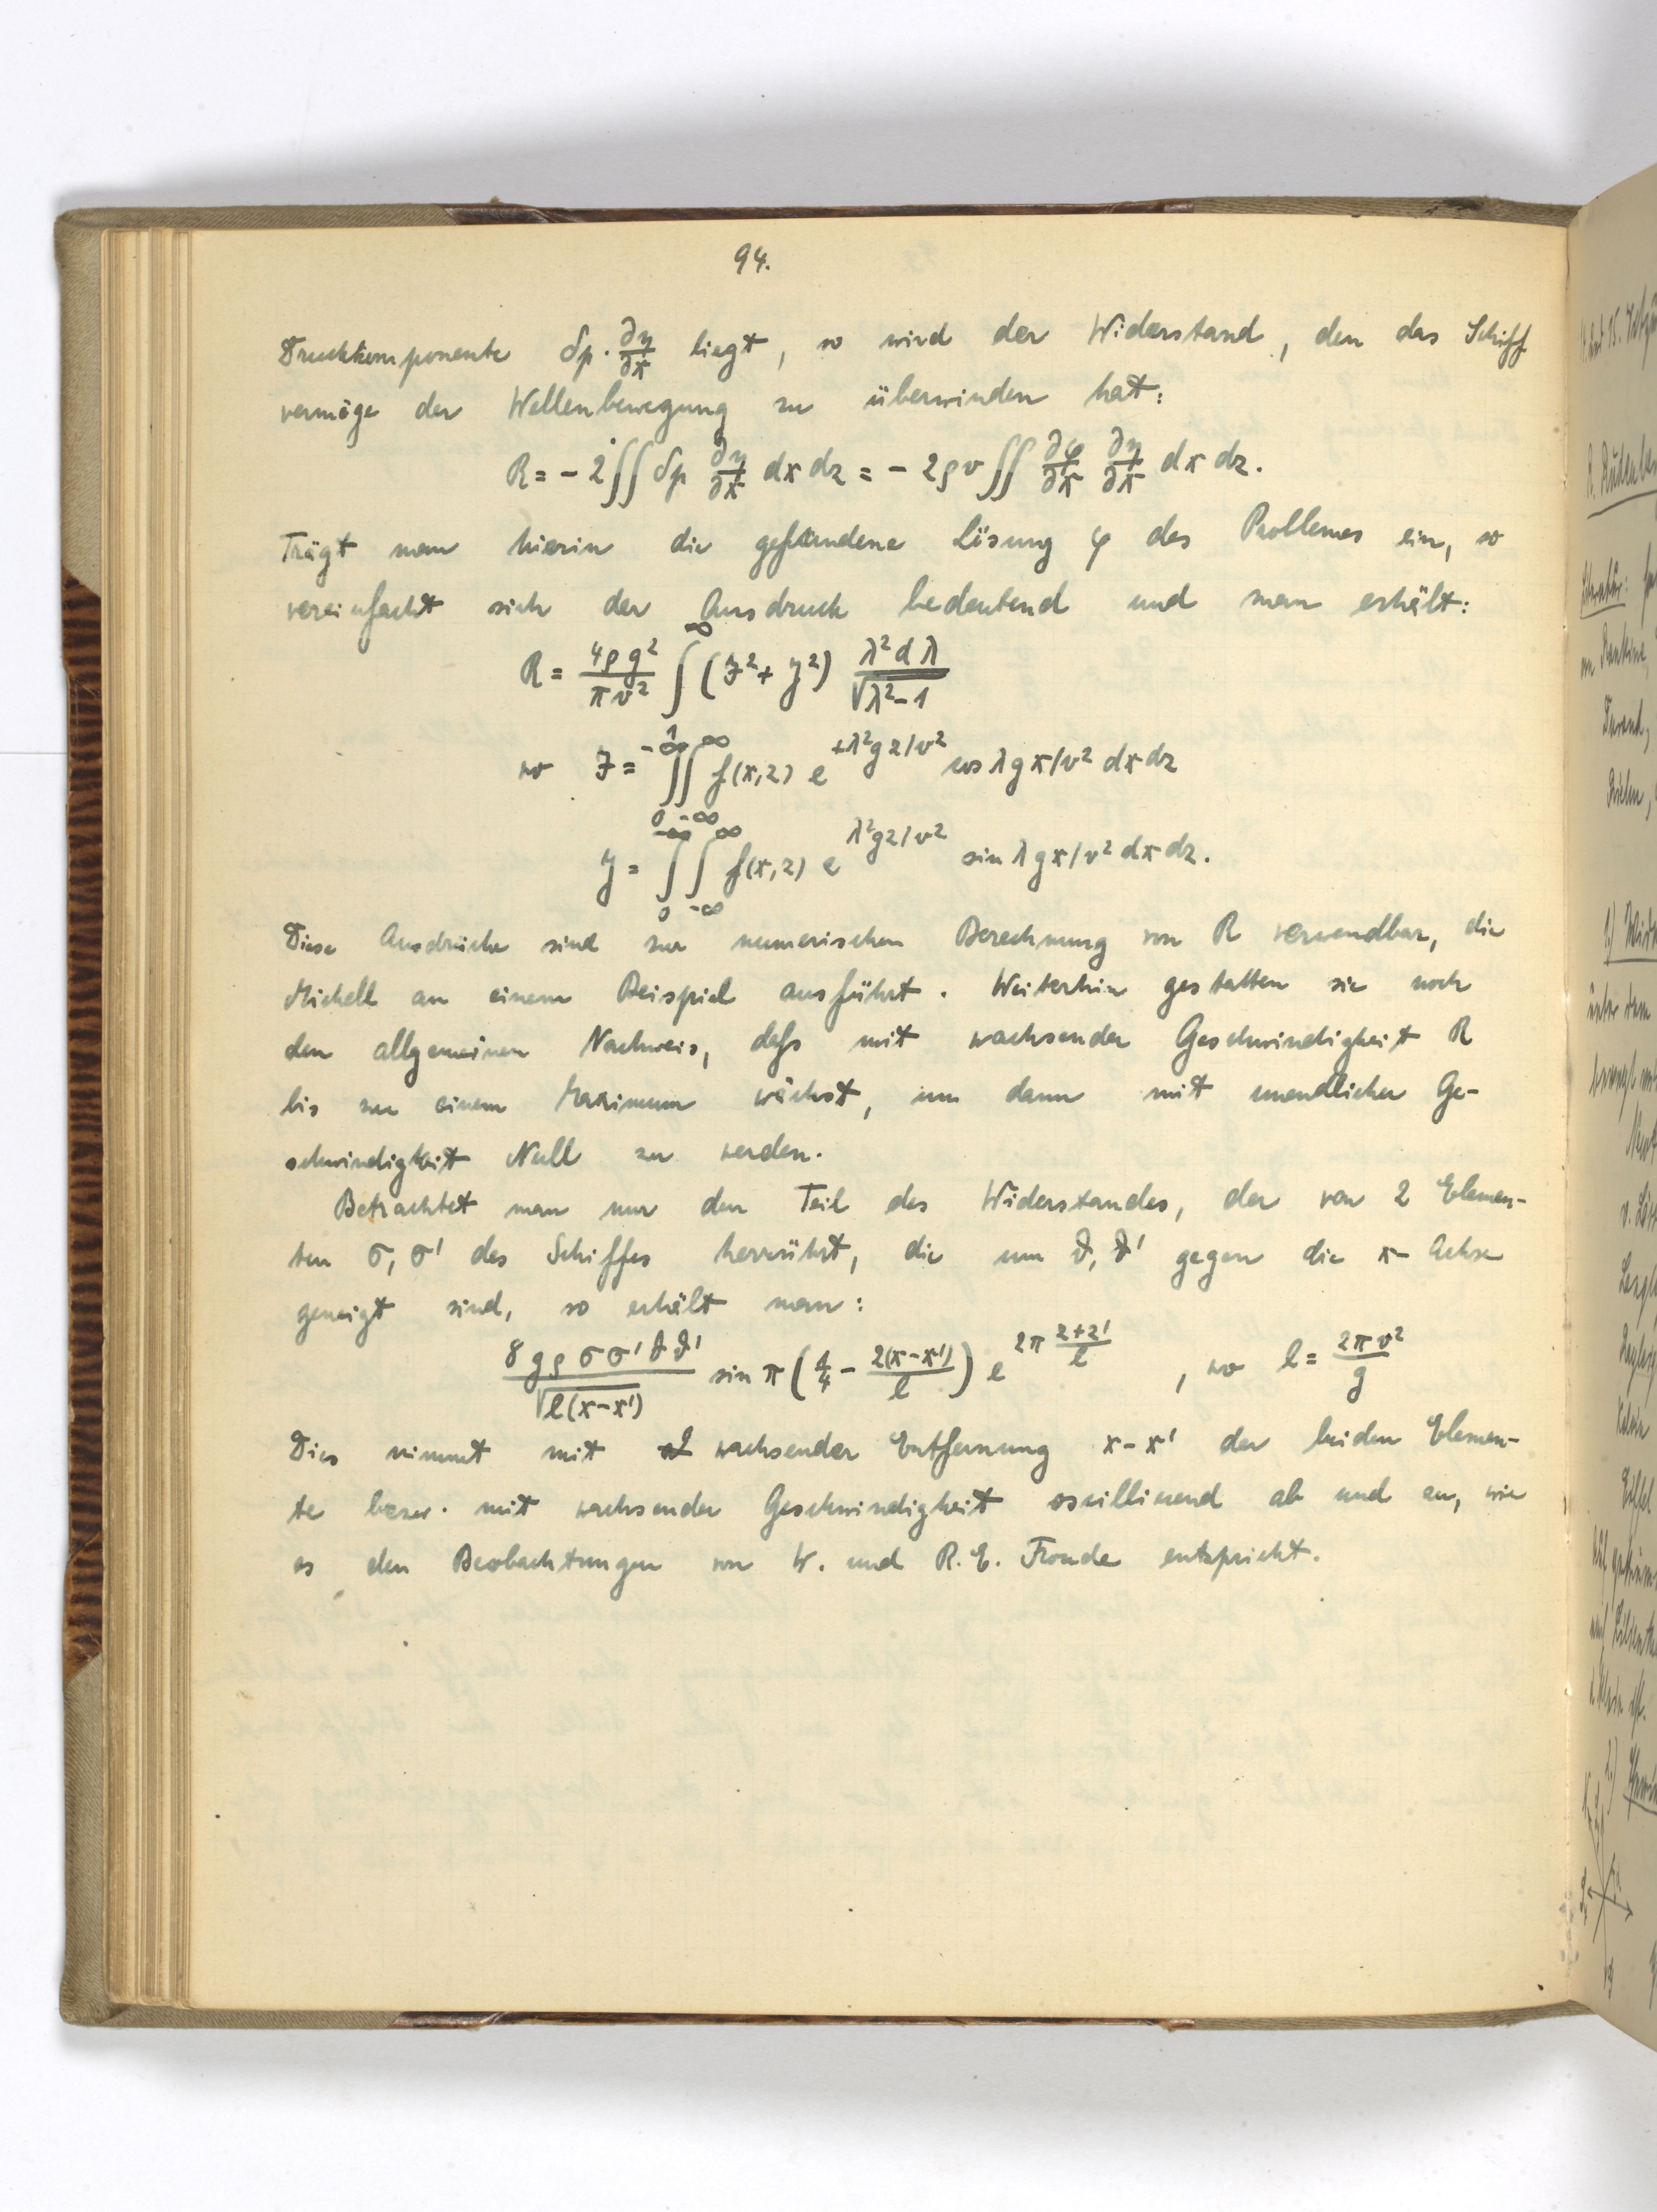 94.
Druckkomponente δp · ∂η/∂x liegt, so wird der Widerstand, den das Schiff
vermöge der Wellenbewegung zu überwinden hat:
R = - 2 ∬ δp ∂η/∂x dx dz = - 2ρv ∬ ∂φ/∂x ∂η/∂x dx dz.
Trägt man hierin die gefundene Lösung φ des Problemes ein, so
vereinfacht sich der Ausdruck bedeutend und man erhält:
R = 4ρg²/πv² ∫₁^∞ (J² + Y²) λ²dλ/√(λ²-1)
wo J = ∫₀^-∞ ∫_-∞^∞ f(x,z) e^(+λ²gz/v²) cos λgx/v² dx dz
Y = ∫₀^-∞ ∫_-∞^∞ f(x,z) e^(λ²gz/v²) sin λgx/v² dx dz.
Diese Ausdrücke sind zur numerischen Berechnung von R verwendbar, die
Michell an einem Beispiel ausführt. Weiterhin gestatten sie noch
den allgemeinen Nachweis, dass mit wachsender Geschwindigkeit R
bis zu einem Maximum wächst, um dann mit unendlicher Ge-
schwindigkeit Null zu werden.
Betrachtet man nur den Teil des Widerstandes, der von 2 Elemen-
ten σ, σ' des Schiffes herrührt, die um ϑ, ϑ' gegen die x-Achse
geneigt sind, so erhält man:
8gρσσ'ϑϑ'/√(l(x-x')) sin π (1/4 - 2(x-x')/l) e^(2π (z+z')/l), wo l = 2πv²/g
Dies nimmt mit wachsender Entfernung x-x' der beiden Elemen-
te bezw. mit wachsender Geschwindigkeit oszillierend ab und an, wie
es den Beobachtungen von W. und R.E. Froude entspricht.